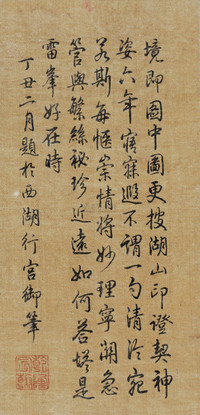 境即圖中圖更披湖山印證契神
姿六年寤寐遐不謂一旬清泠宛
若斯每愜崇情將妙理寧關急
管與繁絲秘珍近遠如何答塔是
雷峯好在時
丁丑二月題於西湖行宮御筆